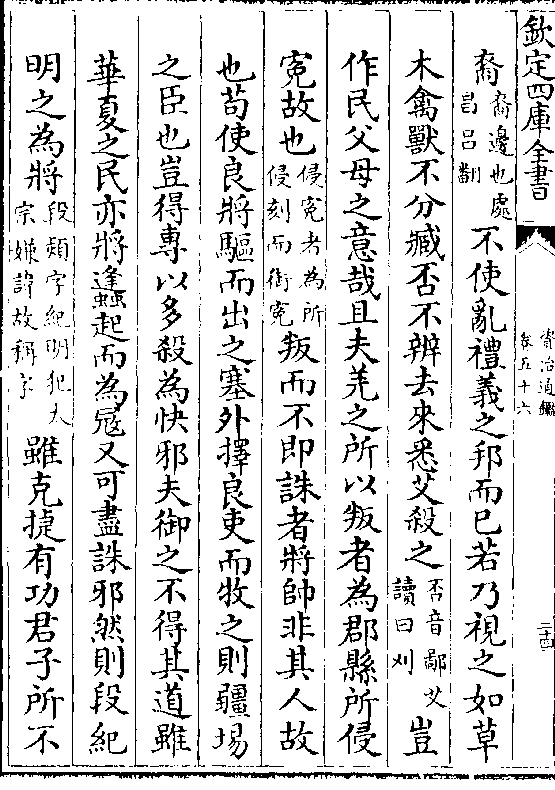 欽定四庫全書
資治通鑑
卷五十六
三十四
裔裔邊也處昌呂翻不使亂禮義之邦而已若乃視之如草
木禽獸不分臧否不辨去來悉艾殺之否音鄙艾讀曰刈豈
作民父母之意哉且夫羌之所以叛者為郡縣所侵
寃故也侵寃者為所侵刻而銜寃叛而不即誅者將帥非其人故
也苟使良將驅而出之塞外擇良吏而牧之則疆埸
之臣也豈得專以多殺為快邪夫御之不得其道雖
華夏之民亦將蠭起而為寇又可盡誅邪然則段紀
明之為將段熲字紀明犯太宗嫌諱故稱字雖克捷有功君子所不